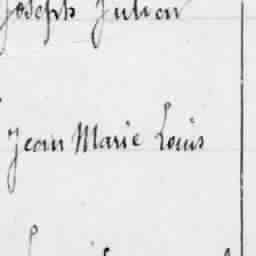 Joseph Julien
Jean Marie Louis